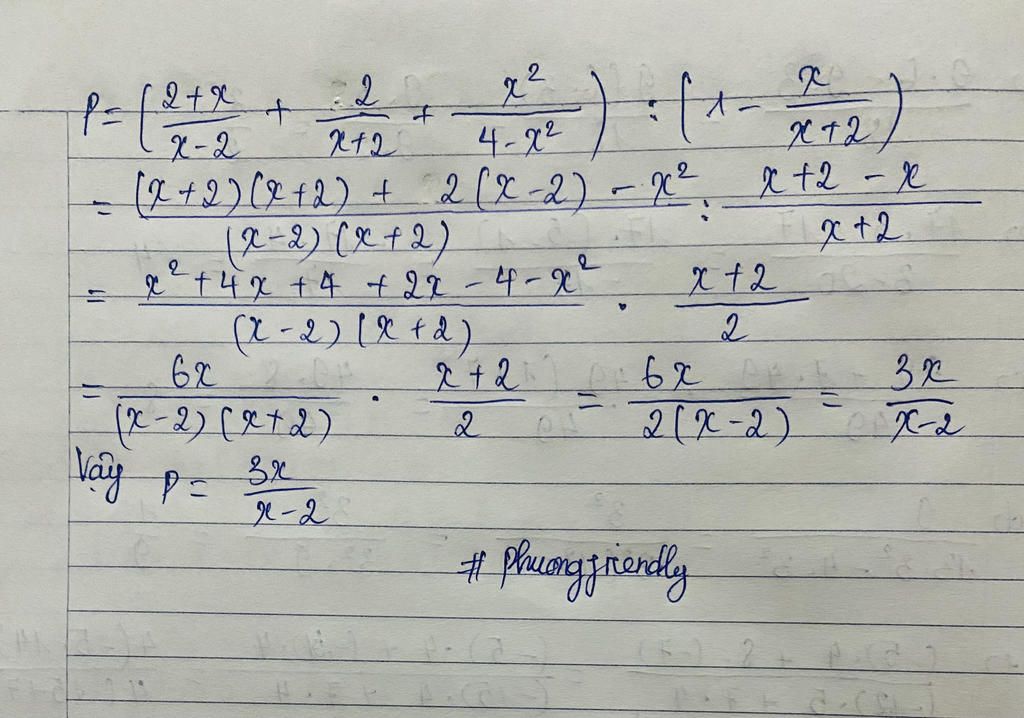 P = ( \frac{2+x}{x-2} + \frac{2}{x+2} + \frac{x^2}{4-x^2} ) : ( 1 - \frac{x}{x+2} )
= \frac{(x+2)(x+2) + 2(x-2) - x^2}{(x-2)(x+2)} : \frac{x+2-x}{x+2}
= \frac{x^2+4x+4+2x-4-x^2}{(x-2)(x+2)} . \frac{x+2}{2}
= \frac{6x}{(x-2)(x+2)} . \frac{x+2}{2} = \frac{6x}{2(x-2)} = \frac{3x}{x-2}
Vậy P = \frac{3x}{x-2}
# phuongfriendly